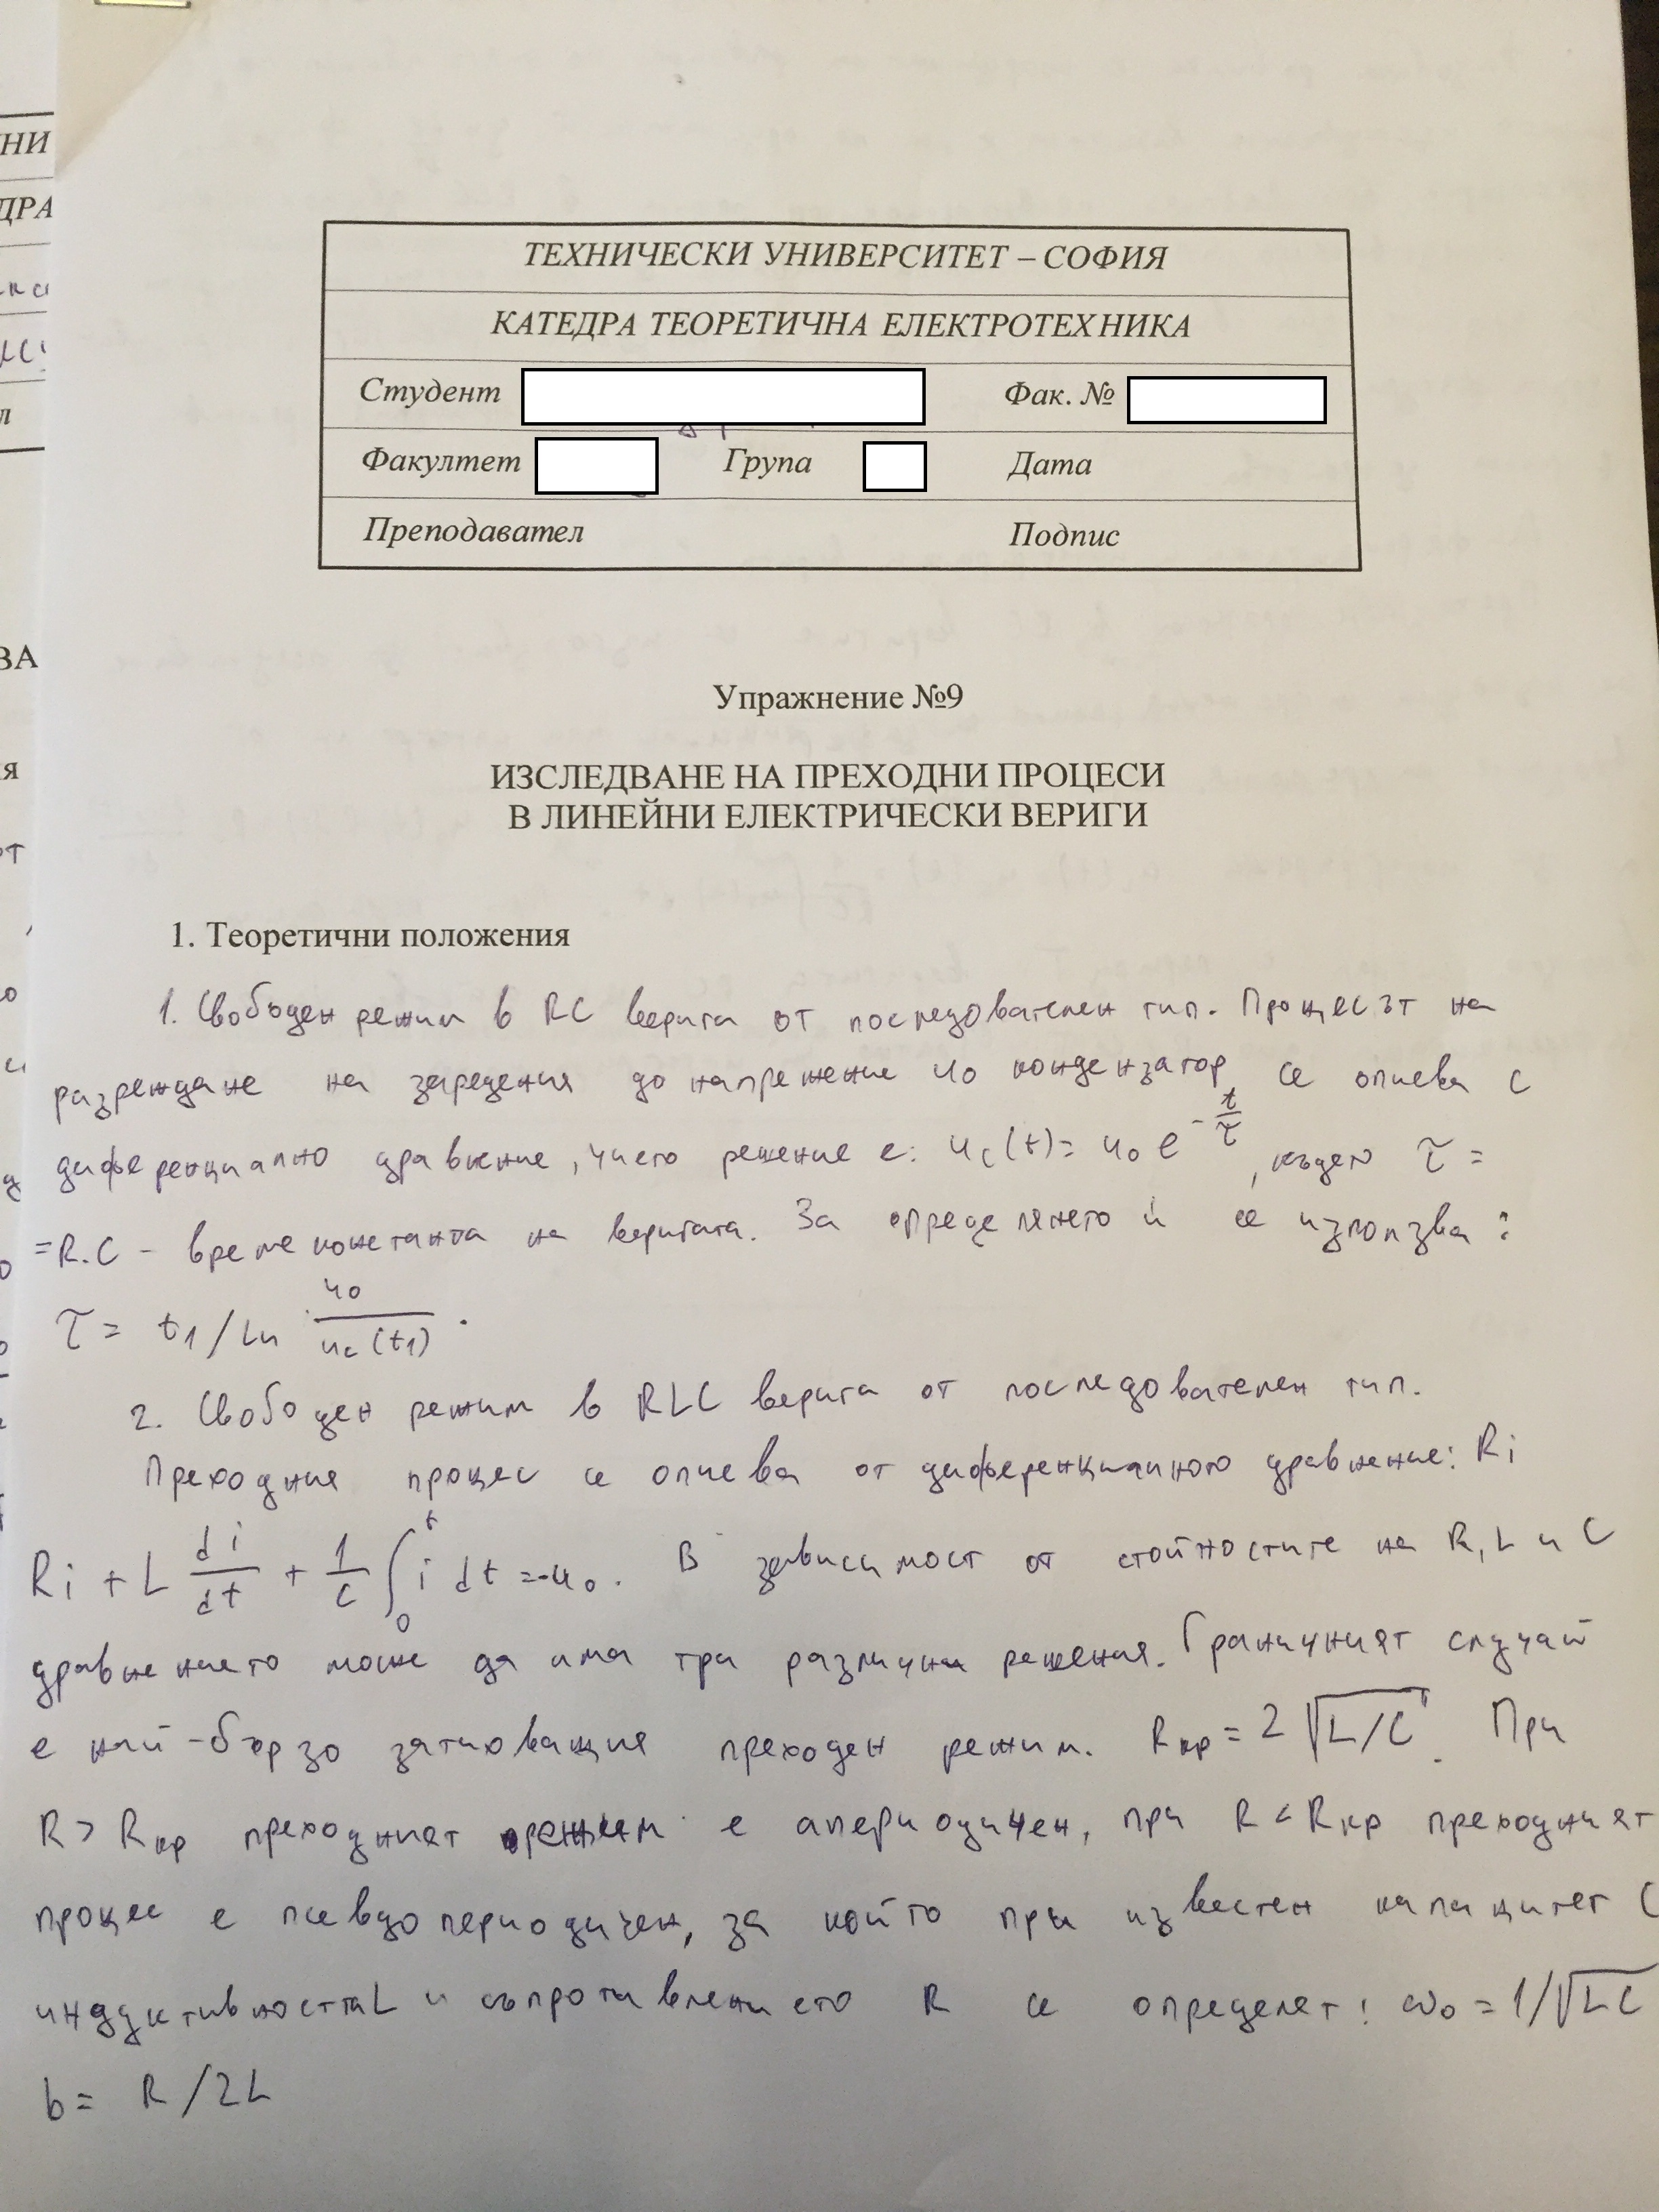 ТЕХНИЧЕСКИ УНИВЕРСИТЕТ – СОФИЯ
КАТЕДРА ТЕОРЕТИЧНА ЕЛЕКТРОТЕХНИКА
Студент Фак. №
Факултет Група Дата
Преподавател Подпис
Упражнение №9
ИЗСЛЕДВАНЕ НА ПРЕХОДНИ ПРОЦЕСИ
В ЛИНЕЙНИ ЕЛЕКТРИЧЕСКИ ВЕРИГИ
1. Теоретични положения
1. Свободен режим в RC верига от последователен тип. Процесът на
разреждане на заредения до напрежение u0 кондензатор се описва с
диференциално уравнение, чието решение е: uc(t)= u0 e^(-t/τ), където τ =
=R.C – времеконстанта на веригата. За определянето ѝ се използва:
τ = t1/ln u0/uc(t1).
2. Свободен режим в RLC верига от последователен тип.
Преходния процес се описва от диференциалното уравнение: Ri
Ri + L di/dt + 1/C ∫₀ᵗ i dt =-u0. В зависимост от стойностите на R, L и C
уравнението може да има три различни решения. Граничният случай
е най-бързо затихващия преходен режим. Rкр = 2√L/C. При
R > Rкр преходният режим е апериодичен, при R < Rкр преходният
процес е псевдопериодичен, за който при известен капацитет C
индуктивността L и съпротивлението R се определят: ω0 = 1/√LC
b = R/2L